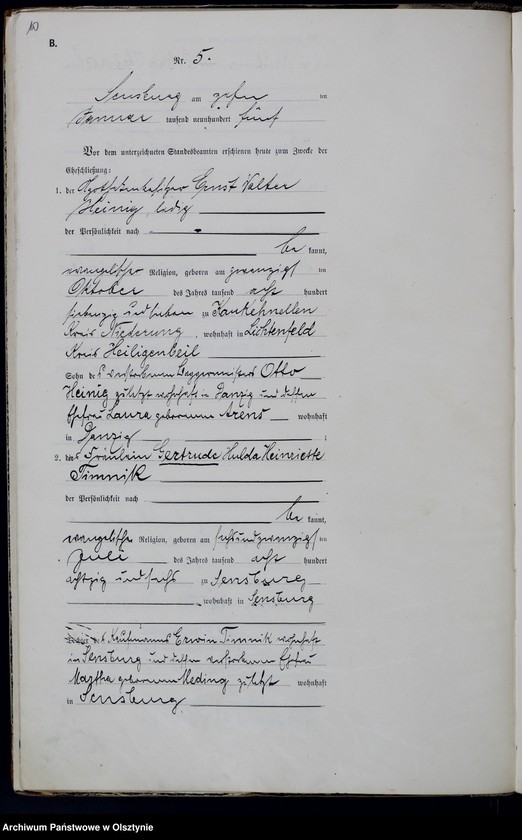 10
B.
Nr. 5.
Sensburg am zehn ten
Januar tausend neunhundert fünf
Vor dem unterzeichneten Standesbeamten erschienen heute zum Zwecke der
Eheschließung:
1. der Apothekenbesitzer Ernst Walter
Heinig, ledig
der Persönlichkeit nach
be kannt,
evangelischer Religion, geboren am zwanzigs ten
Oktober des Jahres tausend acht hundert
siebenzig und sieben zu Kaukehnellen
Kreis Niederung, wohnhaft in Lichtenfeld
Kreis Heiligenbeil
Sohn des verstorbenen Baggermeisters Otto
Heinig zuletzt wohnhaft in Danzig und dessen
Ehefrau Laura geborenen Arens wohnhaft
in Danzig ;
2. das Fräulein Gertrude Hulda Heinriette
Timnik
der Persönlichkeit nach
be kannt,
evangelischer Religion, geboren am sechsundzwanzigs ten
Juli des Jahres tausend acht hundert
achtzig und sechs zu Sensburg
, wohnhaft in Sensburg
des Kaufmanns Erwin Timnik wohnhaft
in Sensburg und dessen verstorbenen Ehefrau
Martha geborenen Meding zuletzt wohnhaft
in Sensburg
Archiwum Państwowe w Olsztynie